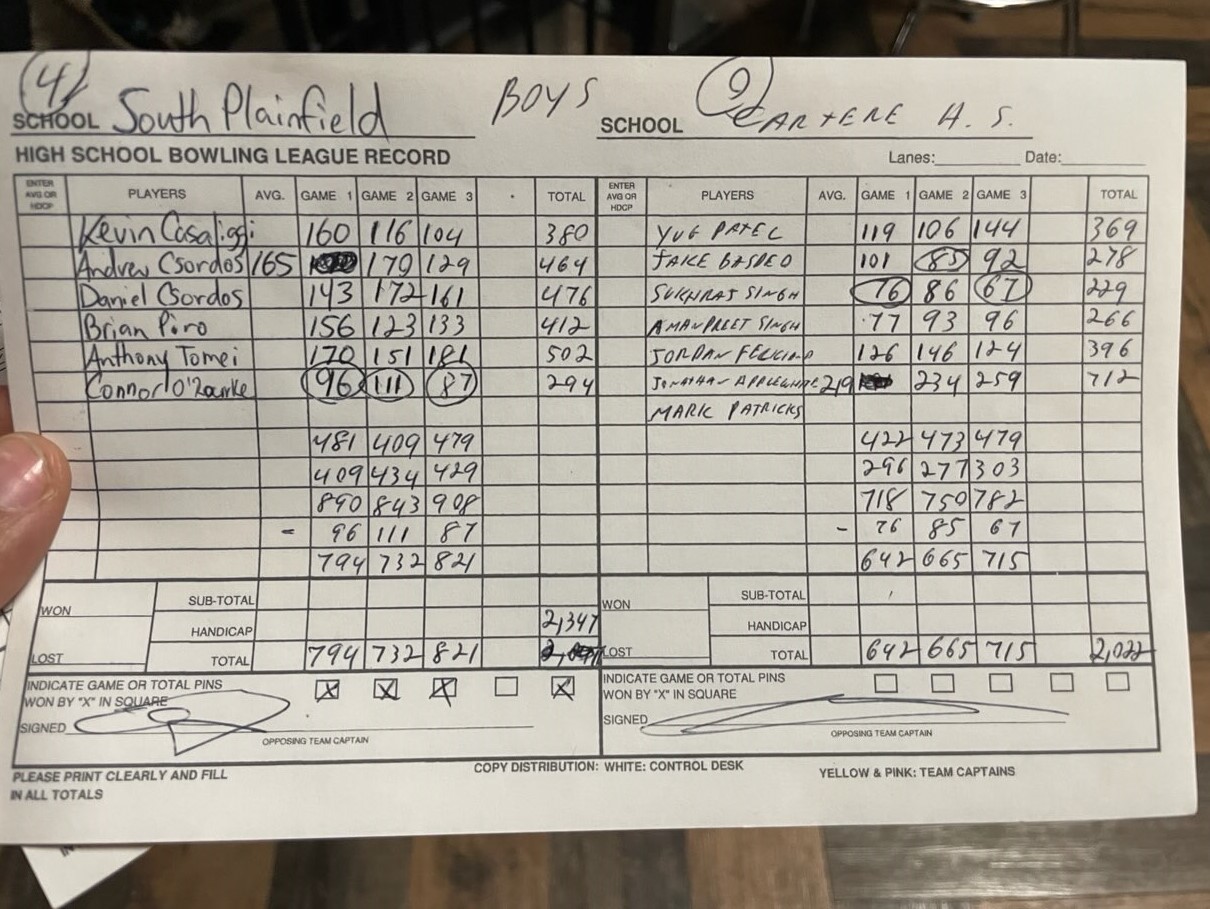 4 South Plainfield BOYS 9 CARTERE H. S.
SCHOOL SCHOOL
HIGH SCHOOL BOWLING LEAGUE RECORD Lanes: Date:
ENTER AVG OR HDCP PLAYERS AVG. GAME 1 GAME 2 GAME 3 TOTAL ENTER AVG OR HDCP PLAYERS AVG. GAME 1 GAME 2 GAME 3 TOTAL
Kevin Casaliggi 160 116 104 380 YUG PATEL 119 106 144 369
Andrew Csordos 165 170 129 464 JAKE 101 85 92 278
Daniel Csordos 143 172 161 476 SUKHRAJ SINGH 76 86 67 229
Brian Piro 156 123 133 412 AMANPREET SINGH 77 93 96 266
Anthony Tomei 170 151 181 502 JORDAN 126 146 124 396
Connor O'Rourke 96 111 87 294 JONATHAN APPLEWHITE 219 234 259 712
MARK PATRICKS
481 409 479 422 473 479
409 434 429 296 277 303
890 843 908 718 750 782
- 96 111 87 - 76 85 67
794 732 821 642 665 715
WON SUB-TOTAL WON SUB-TOTAL
HANDICAP 2,347 HANDICAP
LOST TOTAL 794 732 821 LOST TOTAL 642 665 715 2,022
INDICATE GAME OR TOTAL PINS X X X X INDICATE GAME OR TOTAL PINS
WON BY "X" IN SQUARE WON BY "X" IN SQUARE
SIGNED SIGNED
OPPOSING TEAM CAPTAIN OPPOSING TEAM CAPTAIN
PLEASE PRINT CLEARLY AND FILL COPY DISTRIBUTION: WHITE: CONTROL DESK YELLOW & PINK: TEAM CAPTAINS
IN ALL TOTALS